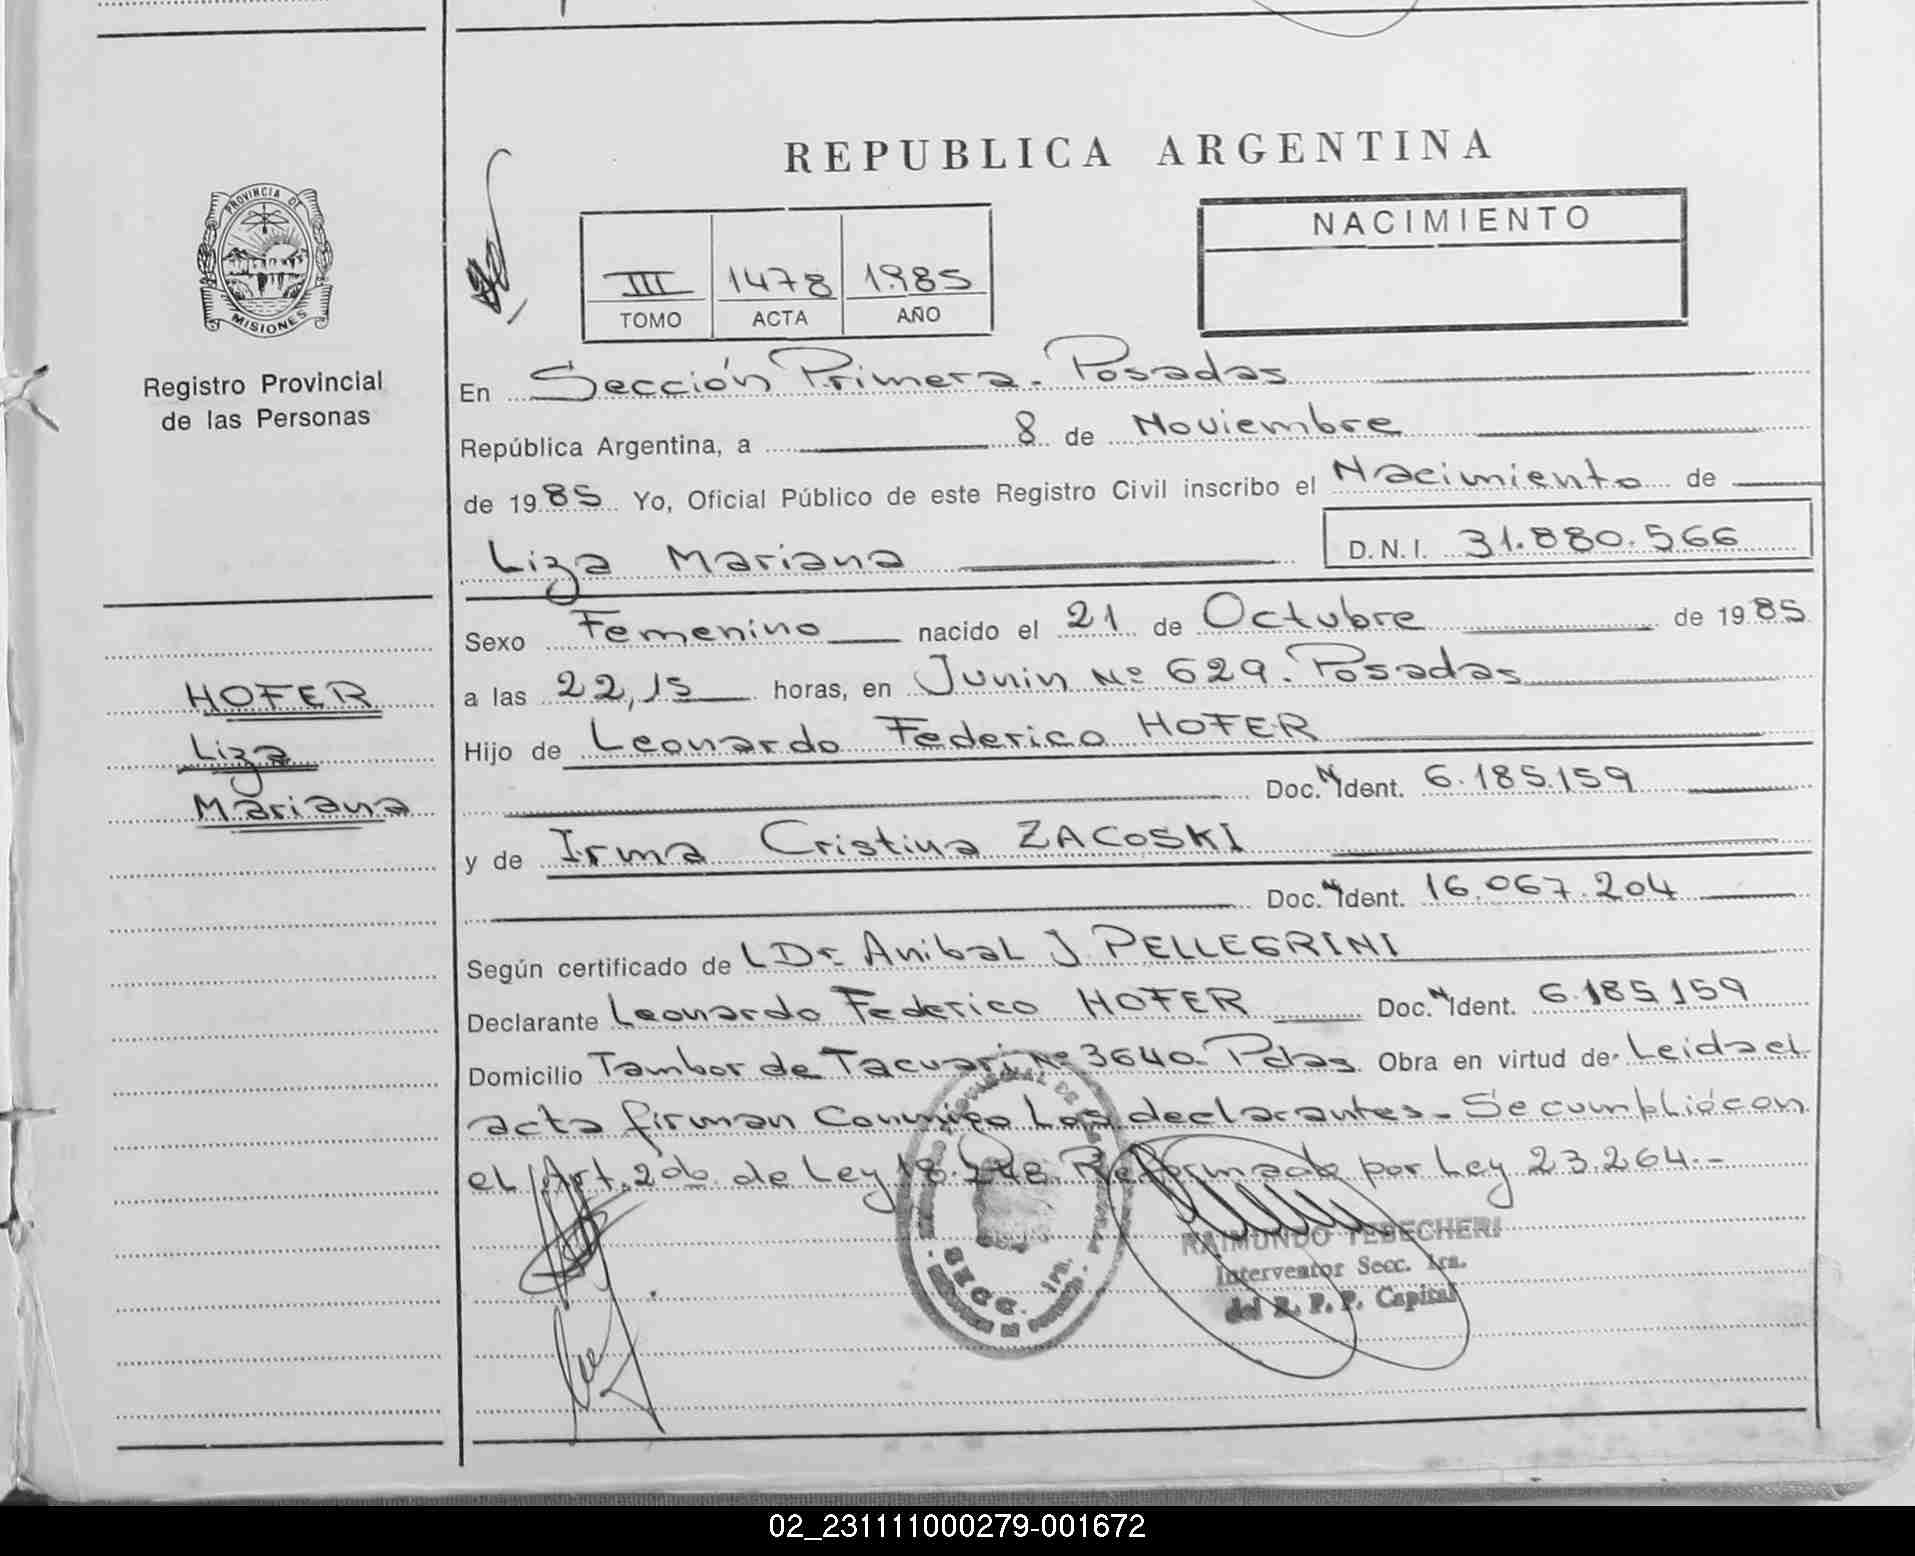 REPUBLICA ARGENTINA
PROVINCIA DE
MISIONES
Registro Provincial
de las Personas
III 1478 1985
TOMO ACTA AÑO
NACIMIENTO
En Sección Primera. Posadas
República Argentina, a 8 de Noviembre
de 1985 Yo, Oficial Público de este Registro Civil inscribo el Nacimiento de
Liza Mariana D.N.I. 31.880.566
Sexo Femenino nacido el 21 de Octubre de 1985
a las 22,15 horas, en Junin Nº 629. Posadas
HOFER
Liza
Mariana
Hijo de Leonardo Federico HOFER
Doc. Ident. 6.185.159
y de Irma Cristina ZACOSKI
Doc. Ident. 16.067.204
Según certificado de L Dr. Anibal J. PELLEGRINI
Declarante Leonardo Federico HOFER Doc. Ident. 6.185.159
Domicilio Tambor de Tacuari Nº 3640. Pdas. Obra en virtud de Leida el
acta firman Conmigo Los declarantes. Se cumplió con
el Art. 2do. de Ley 18.248. Reformado por Ley 23.264.-
SECC. 1ra.
RAIMUNDO TEBECHERI
Interventor Secc. 1ra.
del R. P. P. Capital
02_231111000279-001672